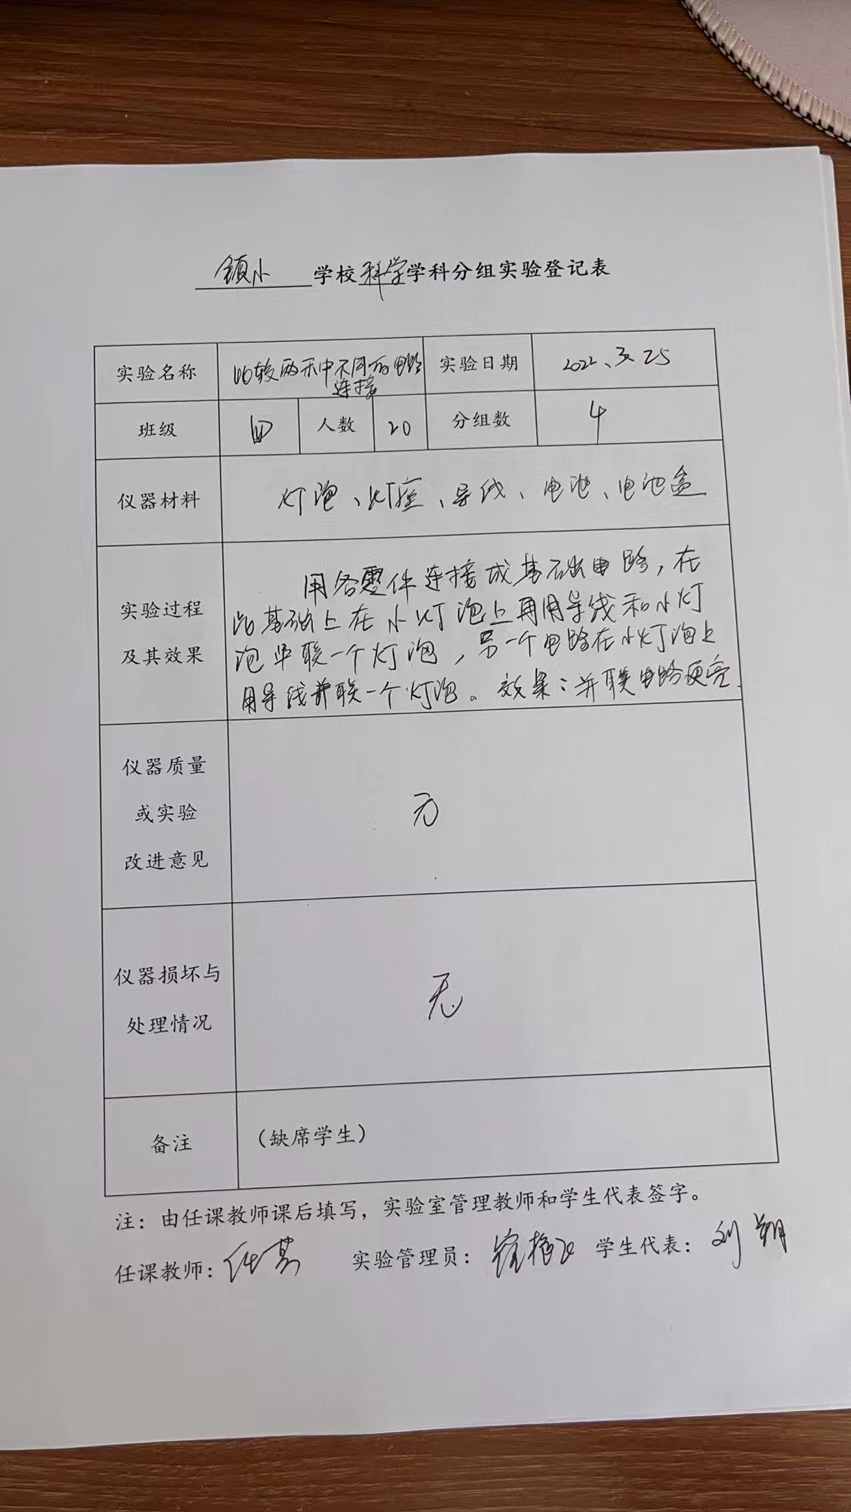 镇小 学校科学学科分组实验登记表
实验名称 比较两种不同的电路
连接
实验日期 2022、3、25
班级 四 人数 20 分组数 4
仪器材料 灯泡、灯座、导线、电池、电池盒
实验过程
及其效果
用各零件连接成基础电路,在
此基础上在小灯泡上再用导线和小灯
泡串联一个灯泡,另一个电路在小灯泡上
用导线并联一个灯泡。效果:并联电路更亮
仪器质量
或实验
改进意见
无
仪器损坏与
处理情况
无
备注 (缺席学生)
注:由任课教师课后填写,实验室管理教师和学生代表签字。
任课教师: 实验管理员: 学生代表:刘翔